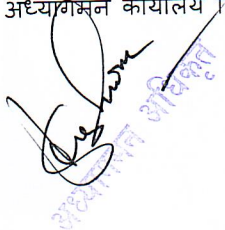 अध्यागमन कार्यालय ।
अध्यागमन अधिकृत